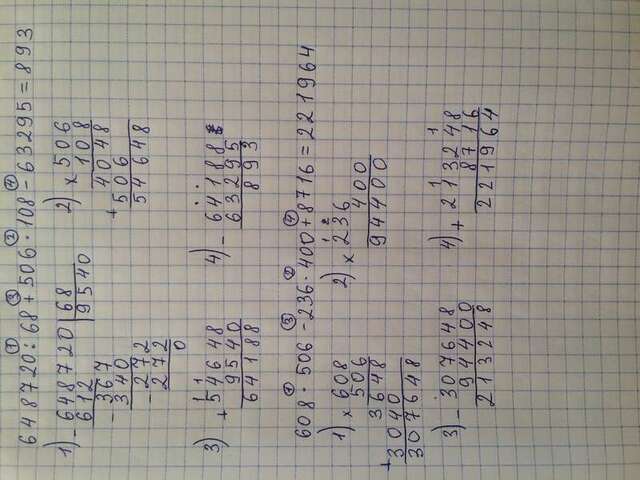 ① ③ ② ④
648720:68+506·108-63295=893
1) -648720|68
612 9540
-367
340
-272
272
0
2) ×506
108
4048
+506
54648
3) 1 1
+54648
9540
64188
4) -64188
63295
893
① ③ ② ④
608·506-236·400+8716=221964
1) ×608
506
3648
+3040
307648
2) 1 2
×236
400
94400
3) -307648
94400
213248
4) 1 1
+213248
8716
221964